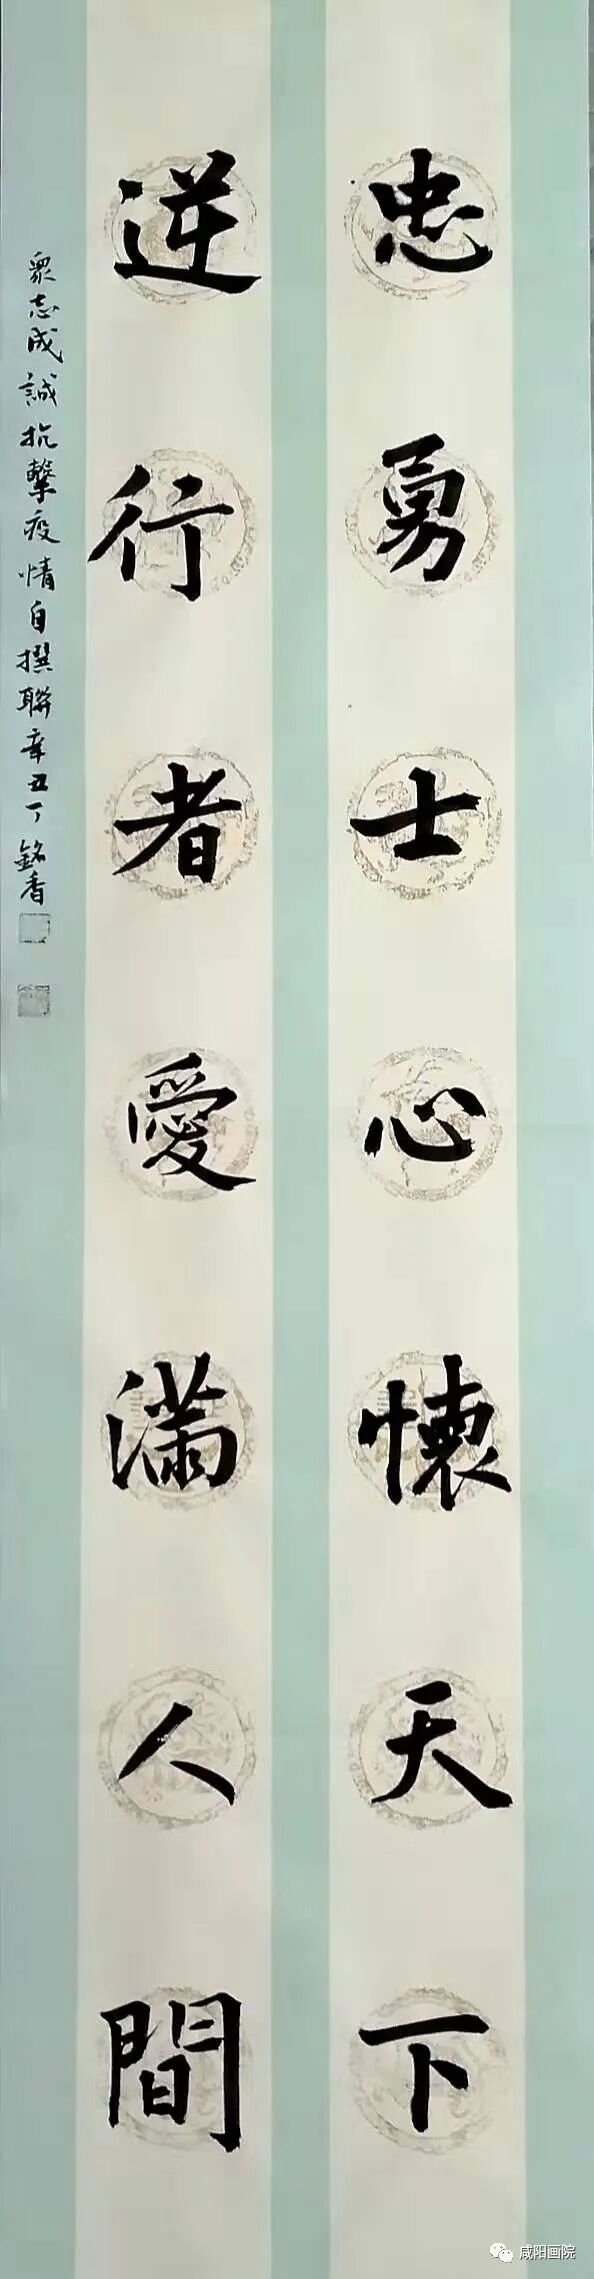 忠勇士心懷天下
逆行者愛滿人間
眾志成誠抗擊疫情自撰聯辛丑丁銘香
咸阳画院